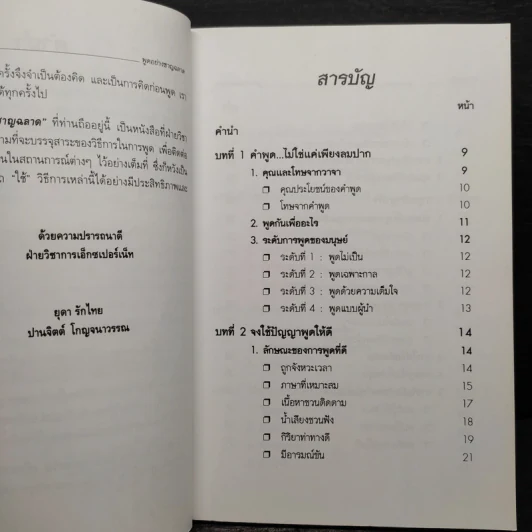 พูดอย่างชาญฉลาด
ครั้งจึงจำเป็นต้องคิด และเป็นการคิดก่อนพูด เรา
ได้ทุกครั้งไป
ชาญฉลาด" ที่ท่านถืออยู่นี้ เป็นหนังสือที่ฝ่ายวิชา
ามที่จะบรรจุสาระของวิธีการในการพูด เพื่อติดต่อ
นในสถานการณ์ต่างๆ ไว้อย่างเต็มที่ ซึ่งก็หวังเป็น
"ใช้" วิธีการเหล่านี้ได้อย่างมีประสิทธิภาพและ
ด้วยความปรารถนาดี
ฝ่ายวิชาการเอ็กซเปอร์เน็ท
ยุดา รักไทย
ปานจิตต์ โกญจนาวรรณ
สารบัญ
หน้า
คำนำ
บทที่ 1 คำพูด...ไม่ใช่แค่เพียงลมปาก 9
1. คุณและโทษจากวาจา 9
❐ คุณประโยชน์ของคำพูด 10
❐ โทษจากคำพูด 10
2. พูดกันเพื่ออะไร 11
3. ระดับการพูดของมนุษย์ 12
❐ ระดับที่ 1 : พูดไม่เป็น 12
❐ ระดับที่ 2 : พูดเฉพาะกาล 12
❐ ระดับที่ 3 : พูดด้วยความเต็มใจ 12
❐ ระดับที่ 4 : พูดแบบผู้นำ 13
บทที่ 2 จงใช้ปัญญาพูดให้ดี 14
1. ลักษณะของการพูดที่ดี 14
❐ ถูกจังหวะเวลา 14
❐ ภาษาที่เหมาะสม 15
❐ เนื้อหาชวนติดตาม 17
❐ น้ำเสียงชวนฟัง 18
❐ กิริยาท่าทางดี 19
❐ มีอารมณ์ขัน 21